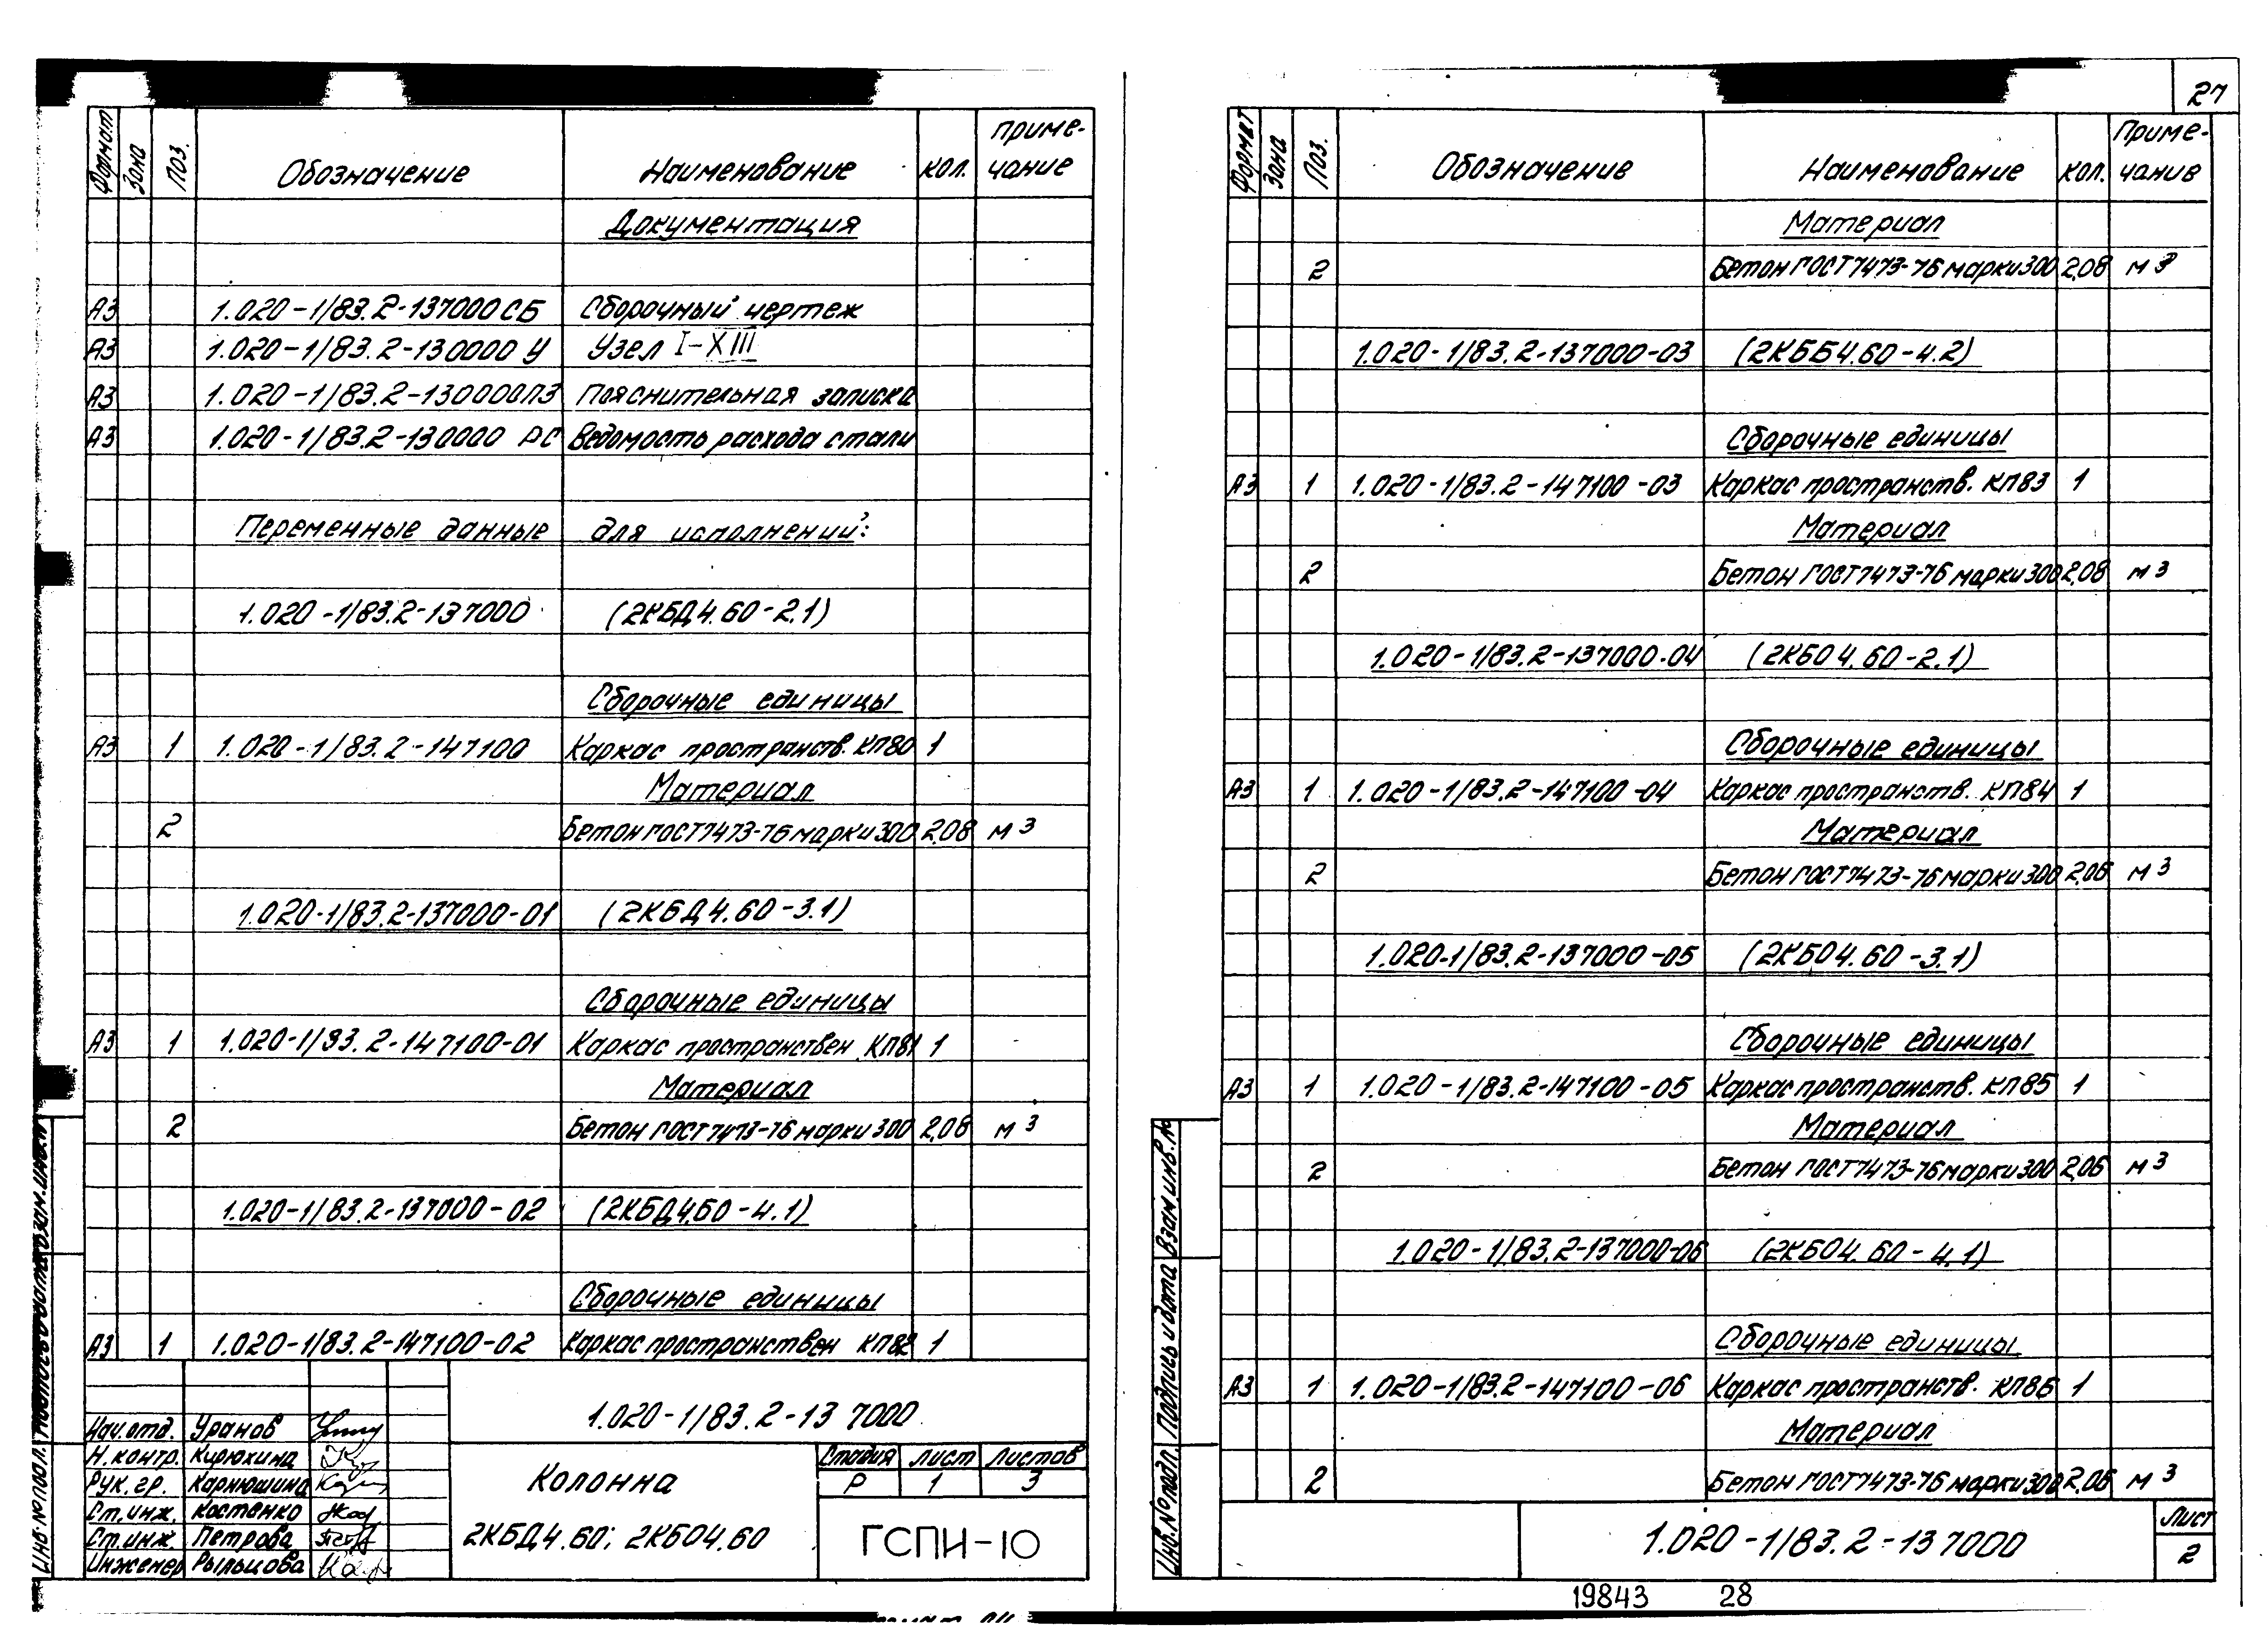 Формат Зона Поз. Обозначение Наименование кол. Приме-
чание
Документация
А3 1.020-1/83.2-137000СБ Сборочный чертеж
А3 1.020-1/83.2-130000 У Узел I-XIII
А3 1.020-1/83.2-130000ПЗ Пояснительная записка
А3 1.020-1/83.2-130000 РС Ведомость расхода стали
Переменные данные для исполнений:
1.020-1/83.2-137000 (2КБД4.60-2.1)
Сборочные единицы
А3 1 1.020-1/83.2-147100 Каркас пространств. КП80 1
Материал
2 Бетон ГОСТ7473-76 марки 300 2,08 м3
1.020-1/83.2-137000-01 (2КБД4.60-3.1)
Сборочные единицы
А3 1 1.020-1/83.2-147100-01 Каркас пространствен. КП81 1
Материал
2 Бетон ГОСТ7473-76 марки 300 2,08 м3
1.020-1/83.2-137000-02 (2КБД4.60-4.1)
Сборочные единицы
А3 1 1.020-1/83.2-147100-02 Каркас пространствен КП82 1
1.020-1/83.2-137000
Нач.отд. Уранов
Н.контр. Кирюхина
Рук.гр. Карнюшина
Ст.инж. Костенко
Ст.инж. Петрова
Инженер Рыльцова
Колонна
2КБД4.60; 2КБО4.60
Стадия Лист Листов
Р 1 3
ГСПИ-10
27
Формат Зона Поз. Обозначение Наименование кол. Приме-
чание
Материал
2 Бетон ГОСТ7473-76 марки 300 2,08 м3
1.020-1/83.2-137000-03 (2КББ4.60-4.2)
Сборочные единицы
А3 1 1.020-1/83.2-147100-03 Каркас пространств. КП83 1
Материал
2 Бетон ГОСТ7473-76 марки 300 2,08 м3
1.020-1/83.2-137000-04 (2КБО4.60-2.1)
Сборочные единицы
А3 1 1.020-1/83.2-147100-04 Каркас пространств. КП84 1
Материал
2 Бетон ГОСТ7473-76 марки 300 2,06 м3
1.020-1/83.2-137000-05 (2КБО4.60-3.1)
Сборочные единицы
А3 1 1.020-1/83.2-147100-05 Каркас пространств. КП85 1
Материал
2 Бетон ГОСТ7473-76 марки 300 2,06 м3
1.020-1/83.2-137000-06 (2КБО4.60-4.1)
Сборочные единицы
А3 1 1.020-1/83.2-147100-06 Каркас пространств. КП86 1
Материал
2 Бетон ГОСТ7473-76 марки 300 2,06 м3
Инв.№ подл. Подпись и дата Взам.инв.№
1.020-1/83.2-137000
Лист
2
19843 28